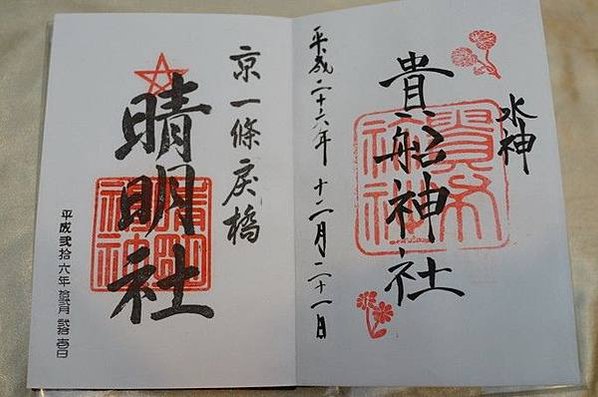 水神
貴船神社
平成二十六年 十二月二十一日
京一條戻橋
晴明社
晴明神社
平成貳拾六年拾貳月貳拾壹日